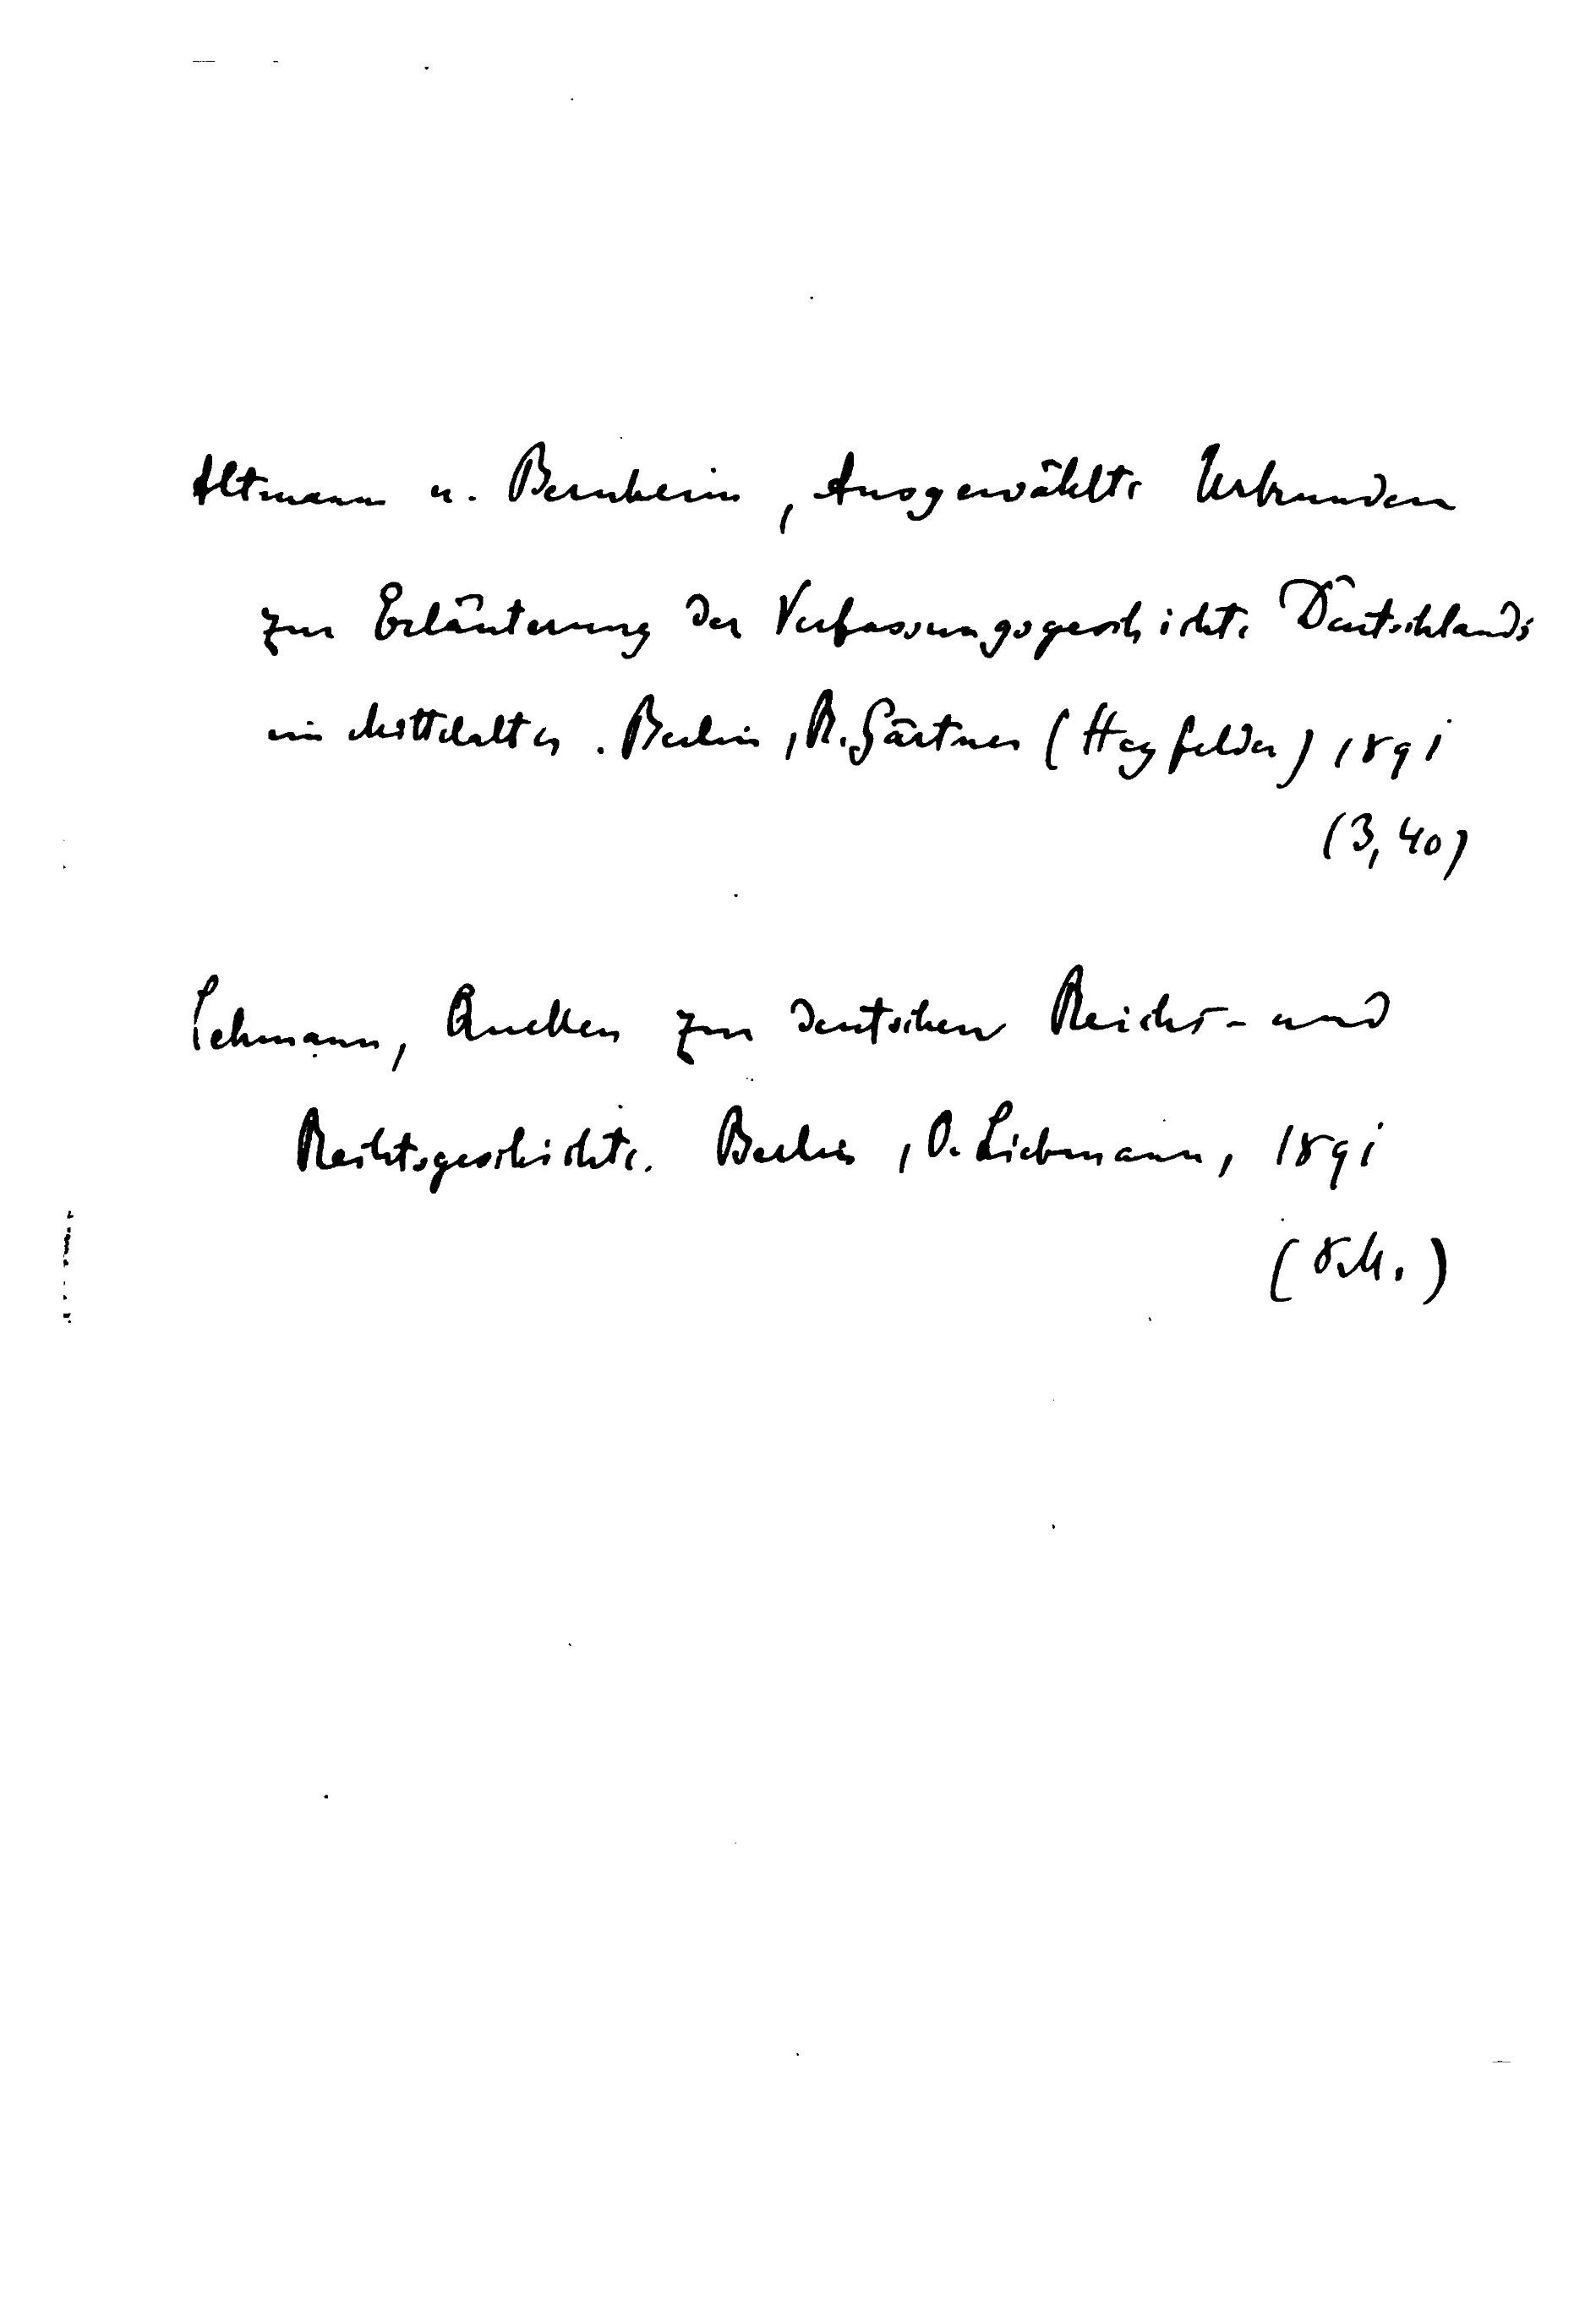 Altmann u. Bernheim, Ausgewählte Urkunden
zur Erläuterung der Verfassungsgeschichte Deutschlands
im Mittelalter. Berlin, R. Gärtner (Heyfelder) 1891
(3,40)
Lehmann, Quellen zur deutschen Reichs- und
Rechtsgeschichte. Berlin, O. Liebmann, 1891
(8 M.)